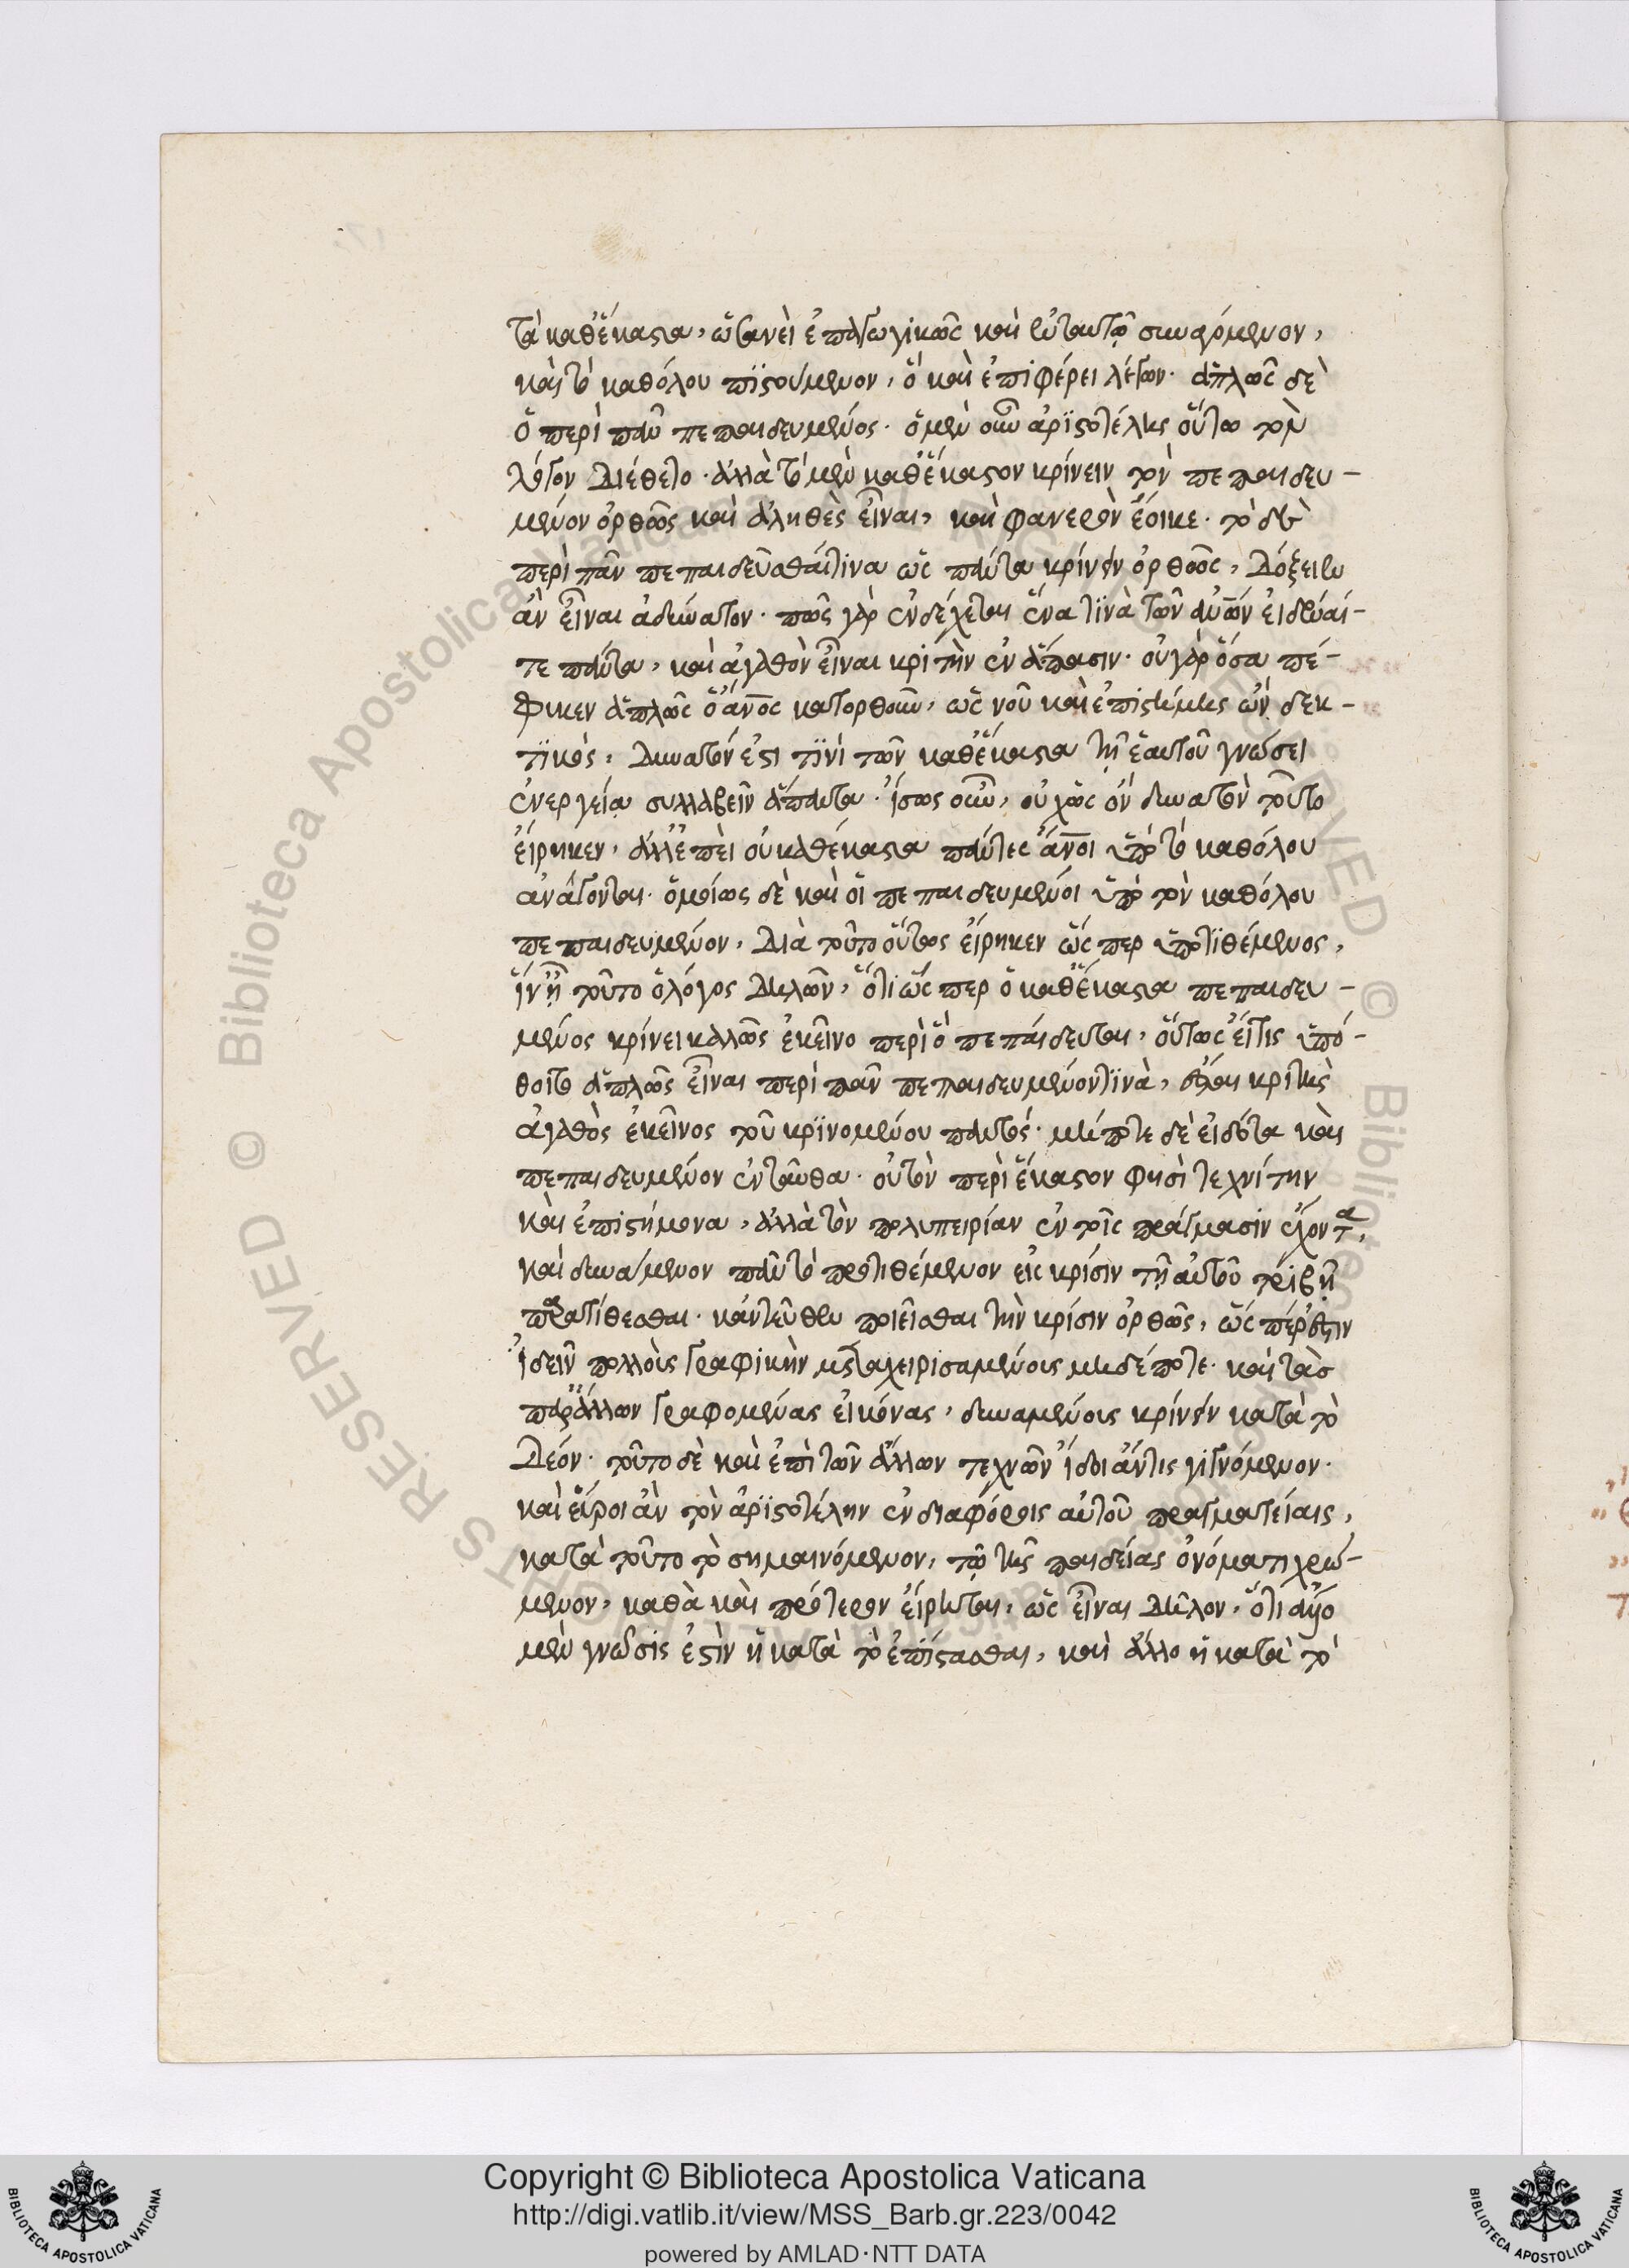 τὰ καθἕκαστα, ὡσανεὶ ἐπαγωγικῶς καὶ ἐνταυτῷ συναγόμενον,
καὶ τὸ καθόλου πιστούμενον, ὃ καὶ ἐπιφέρει λέγων· ἁπλῶς δὲ
ὁ περὶ πᾶν πεπαιδευμένος. ὁ μὲν οὖν ἀριστοτέλης οὕτω τὸν
λόγον διέθετο. ἀλλὰ τὸ μὲν καθἕκαστον κρίνειν τὸν πεπαιδευ-
μένον ὀρθῶς καὶ ἀληθὲς εἶναι, καὶ φανερὸν ἔοικε. τὸ δὲ
περὶ πᾶν πεπαιδεῦσθαί τινα ὡς πάντα κρίνειν ὀρθῶς, δόξειεν
ἂν εἶναι ἀδύνατον. πῶς γὰρ ἐνδέχεται ἕνα τινὰ τῶν ἀνῶν εἰδέναι-
τε πάντα, καὶ ἀγαθὸν εἶναι κριτὴν ἐν ἅπασιν. οὐ γὰρ ὅσα πέ-
φυκεν ἁπλῶς ὁ ἄνος κατορθοῦν, ὡς νοῦ καὶ ἐπιστήμης ὢν δεκ-
τικὸς, δυνατόν ἐστι τινὶ τῶν καθἕκαστα τῇ ἑαυτοῦ γνώσει
ἐνεργείᾳ συλλαβεῖν ἅπαντα. ἴσως οὖν, οὐχ ὡς ὂν δυνατὸν τοῦτο
εἴρηκεν, ἀλλ' ἐπεὶ οἱ καθέκαστα πάντες ἄνοι ὑπὸ τὸ καθόλου
ἀνάγονται. ὁμοίως δὲ καὶ οἱ πεπαιδευμένοι ὑπὸ τὸν καθόλου
πεπαιδευμένον, διὰ τοῦτο οὕτως εἴρηκεν ὥσπερ ὑποτιθέμενος,
ἵν' ᾖ τοῦτο ὁ λόγος δηλῶν, ὅτι ὥσπερ ὁ καθἕκαστα πεπαιδευ-
μένος κρίνει καλῶς ἐκεῖνο περὶ ὃ πεπαίδευται, οὕτως εἴ τις ὑπό-
θοιτο ἁπλῶς εἶναι περὶ πᾶν πεπαιδευμένον τινὰ, ἔσται κριτὴς
ἀγαθὸς ἐκεῖνος τοῦ κρινομένου παντός. μήποτε δὲ εἰδότα καὶ
πεπαιδευμένον ἐνταῦθα. οὐ τὸν περὶ ἕκαστον φησὶ τεχνίτην
καὶ ἐπιστήμονα, ἀλλὰ τὸν πολυπειρίαν ἐν τοῖς πράγμασιν ἔχοντα,
καὶ δυνάμενον πᾶν τὸ προτιθέμενον εἰς κρίσιν τῇ αὐτοῦ τριβῇ
παρατίθεσθαι. κἀντεῦθεν ποιεῖσθαι τὴν κρίσιν ὀρθῶς, ὥσπέρ ἐστιν
ἰδεῖν πολλοὺς γραφικὴν μεταχειρισαμένοις μηδέποτε. καὶ τὰς
παρ' ἄλλων γραφομένας εἰκόνας, δυναμένοις κρίνειν κατὰ τὸ
δέον. τοῦτο δὲ καὶ ἐπὶ τῶν ἄλλων τεχνῶν ἴδοι ἄν τις γιγνόμενον.
καὶ εὕροι ἂν τὸν ἀριστοτέλην ἐν διαφόροις αὐτοῦ πραγματείαις,
κατὰ τοῦτο τὸ σημαινόμενον, τῷ τῆς παιδείας ὀνόματι χρώ-
μενον, καθὰ καὶ πρότερον εἴρηται, ὡς εἶναι δῆλον, ὅτι ἄλλο
μὲν γνῶσις ἐστὶν ἡ κατὰ τὸ ἐπίστασθαι, καὶ ἄλλο ἡ κατὰ τὸ
Copyright © Biblioteca Apostolica Vaticana
http://digi.vatlib.it/view/MSS_Barb.gr.223/0042
powered by AMLAD·NTT DATA